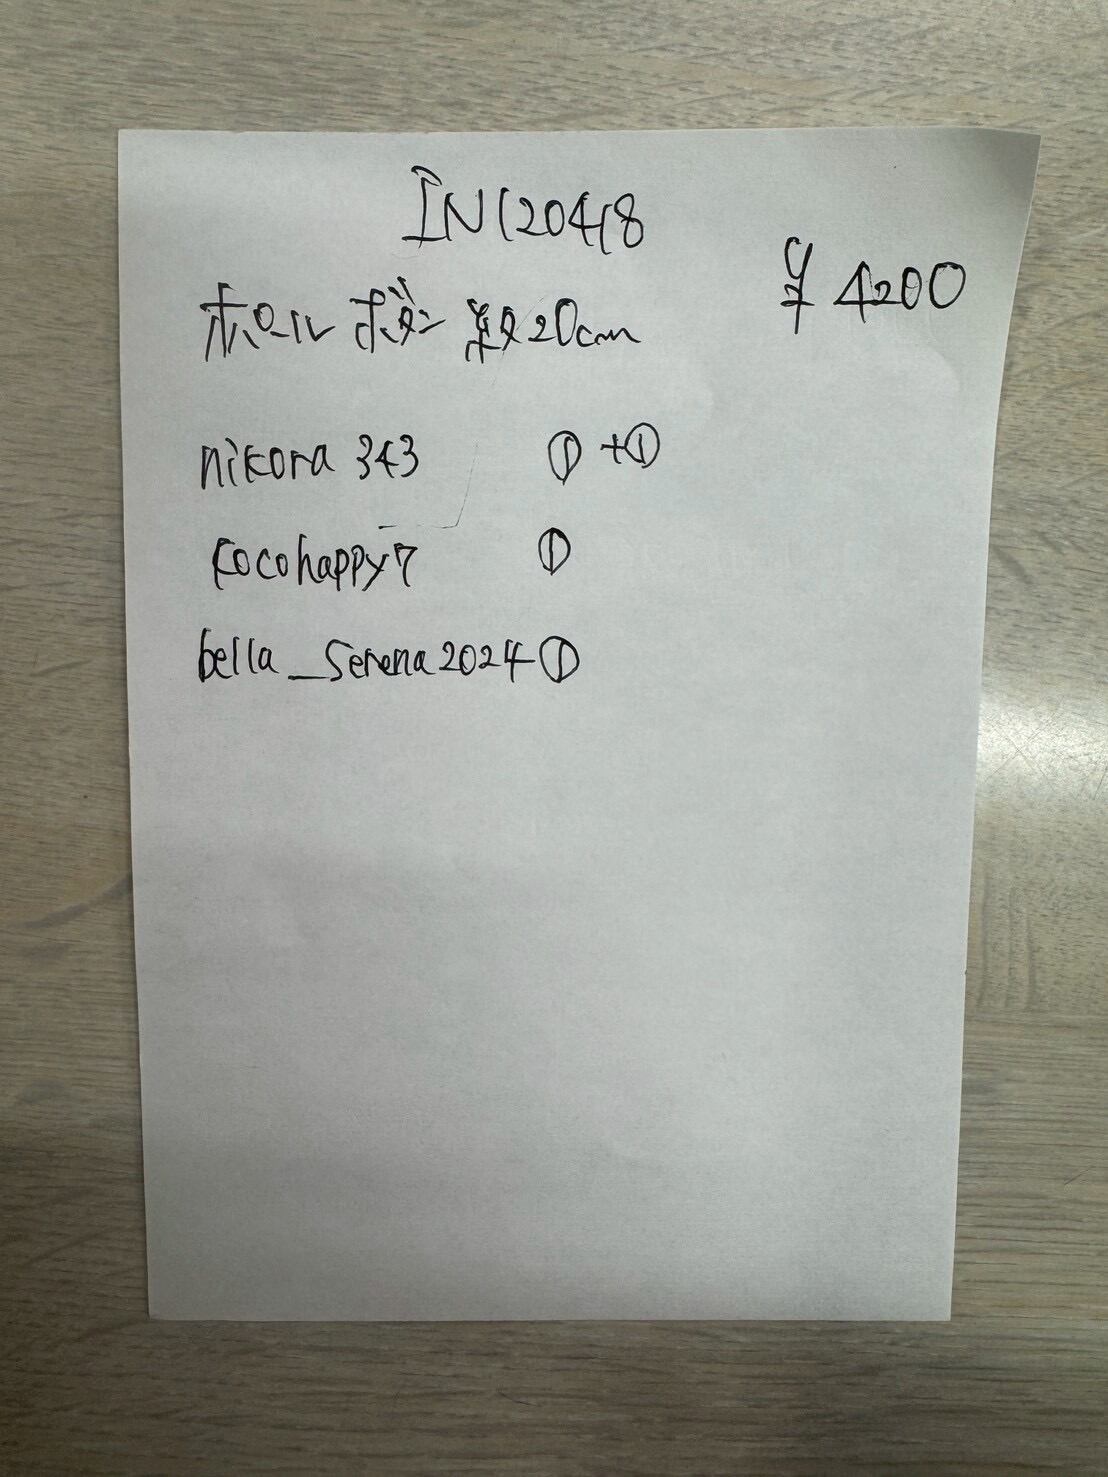 IN120418
¥4200
ホロール ボタン 約20cm
nikora 343 ① +①
Kocohappy7 ①
bella_Serena2024 ①